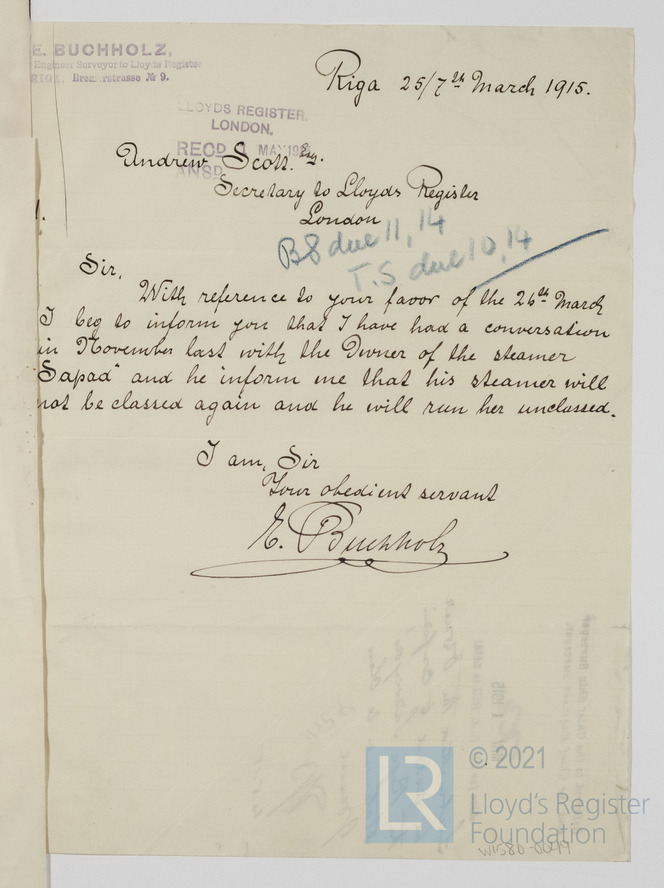 E. BUCHHOLZ,
Engineer Surveyor to Lloyds Register
RIGA, Bremerstrasse № 9.
Riga 25/7th March 1915.
LLOYDS REGISTER,
LONDON.
RECD MAY
ANSD
Andrew Scott. Esq.
Secretary to Lloyds Register
London
BS due 11,14
T.S due 10,14
Sir,
With reference to your favor of the 26th March
I beg to inform you that I have had a conversation
in November last with the Owner of the steamer
Sapad" and he inform me that his steamer will
not be classed again and he will run her unclassed.
I am, Sir
Your obedient servant
E. Buchholz
LR
© 2021
Lloyd's Register
Foundation
W580-0099